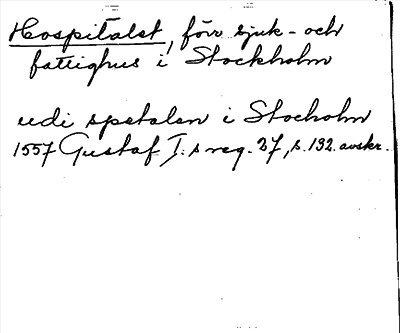 Hospitalet, förr sjuk- och
fattighus i Stockholm
udi spetalen i Stocholm
1557 Gustaf I:s reg. 27, s. 132. avskr.